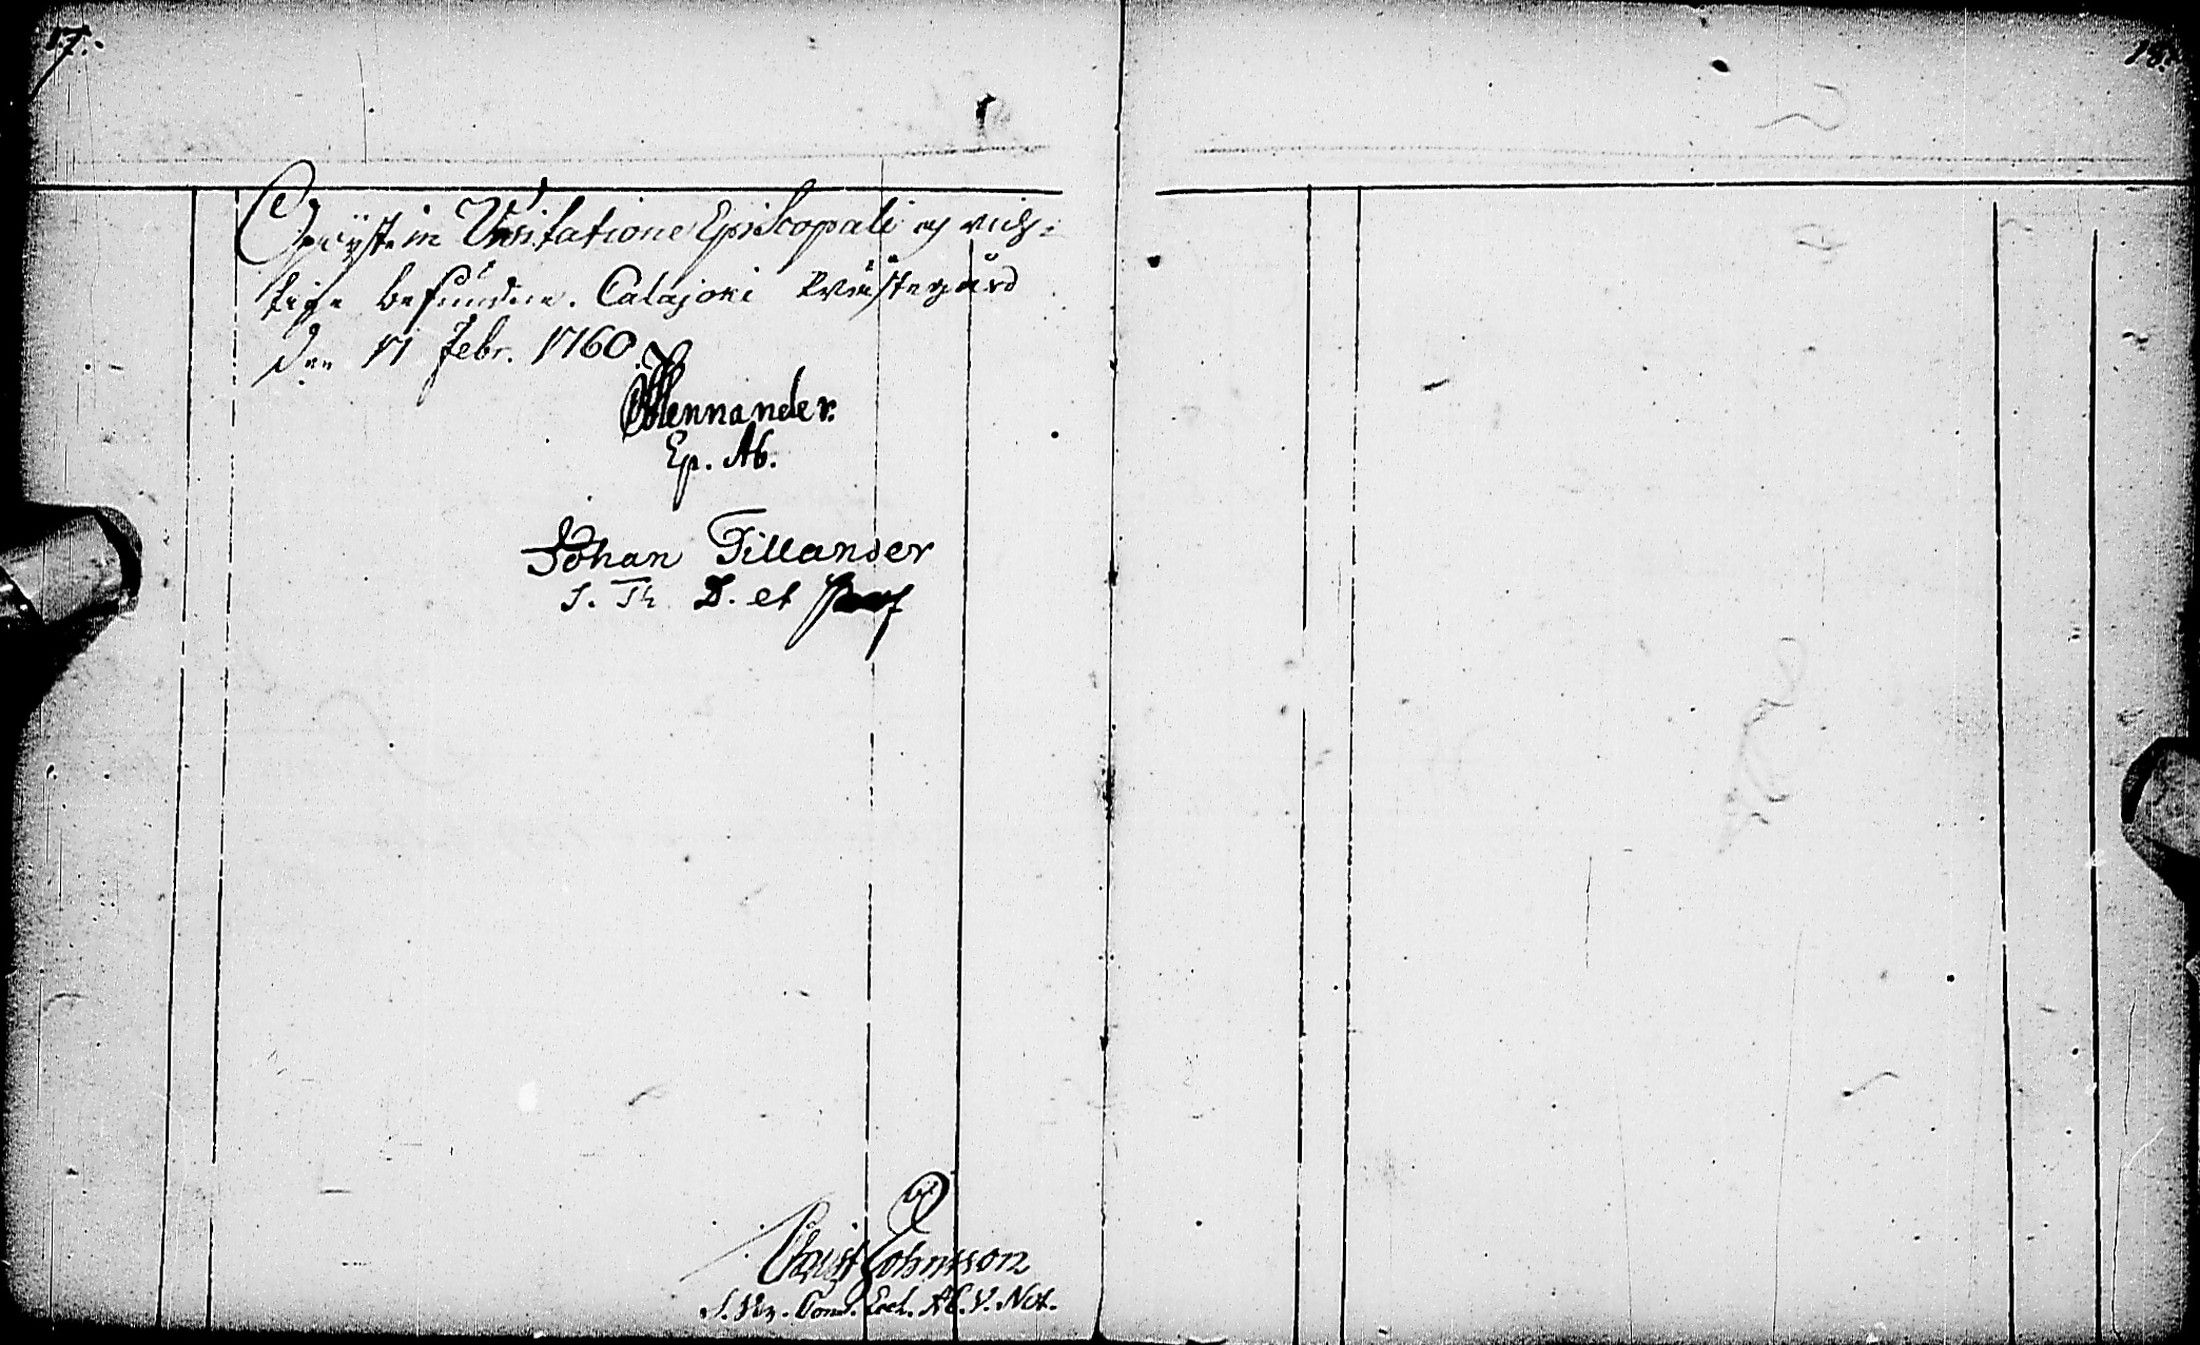 17.
18.
in Visitatione Episcopali och rich-
tige befundne. Calajoki Prästegård
den 11 Febr. 1760.
Mennander.
Ep. Ab.
Johan Tillander
S. Th. D. et Prof
Johnsson
Eccl. Ab. V. Not.